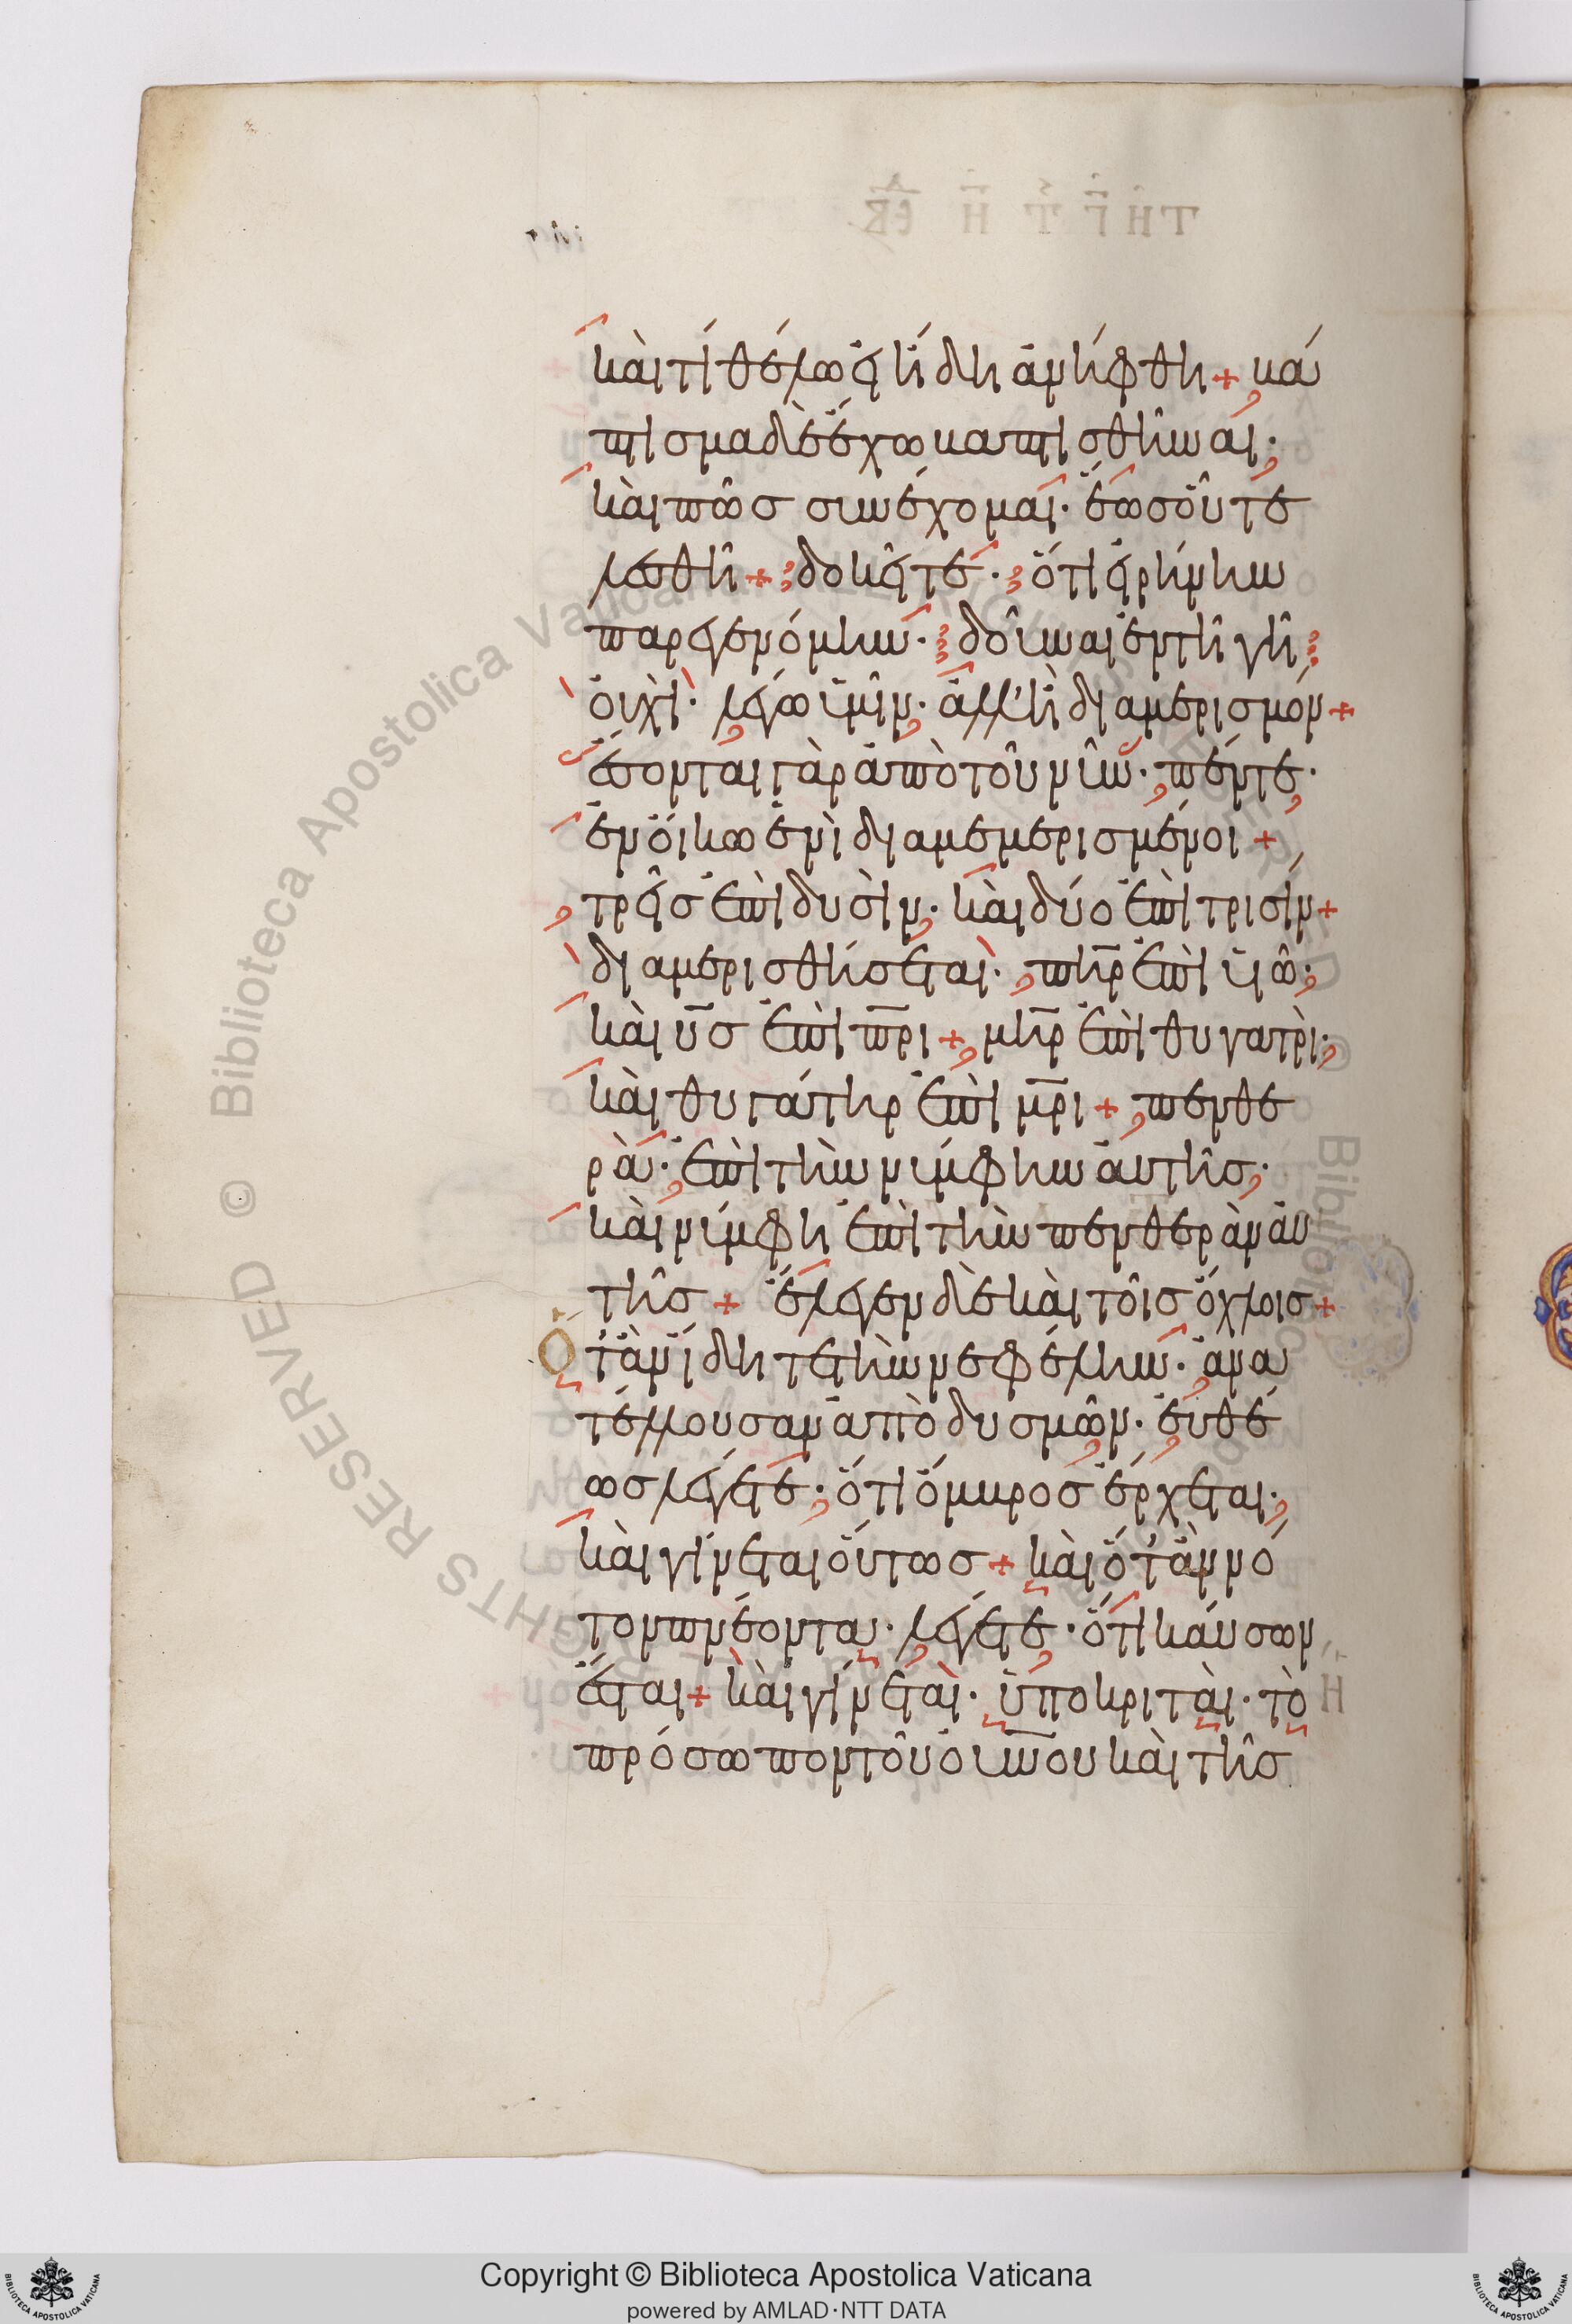 καὶ τί θέλω εἰ ἤδη ἀνήφθη + βά
πτισμα δὲ ἔχω βαπτισθῆναι·
καὶ πῶς συνέχομαι· ἕως οὗ τε
λεσθῆ + δοκεῖτε· ὅτι εἰρήνην
παρεγενόμην· δοῦναι ἐν τῆ γῆ
οὐχὶ· λέγω ὑμῖν· ἀλλ' ἢ διαμερισμόν +
ἔσονται γὰρ ἀπὸ τοῦ νῦν· πέντε·
ἐν οἴκω ἑνὶ διαμεμερισμένοι +
τρεῖς ἐπὶ δυσὶν· καὶ δύο ἐπὶ τρισίν +
διαμερισθήσεται· πηρ ἐπὶ υἱῶ·
καὶ υς ἐπὶ πρι + μηρ ἐπὶ θυγατρὶ·
καὶ θυγάτηρ ἐπὶ μρι + πενθε
ρὰ· ἐπὶ τὴν νύμφην αὐτῆς·
καὶ νύμφη ἐπὶ τὴν πενθερὰν αὐ
τῆς + ἔλεγεν δὲ καὶ τοῖς ὄχλοις +
Ὅταν ἴδητε τὴν νεφέλην· ἀνα
τέλλουσαν ἀπὸ δυσμῶν· εὐθέ
ως λέγετε· ὅτι ὄμβρος ἔρχεται·
καὶ γίνεται οὕτως + καὶ ὅταν νό
τον πνέοντα· λέγετε· ὅτι καύσων
ἔσται + καὶ γίνεται· ὑποκριταὶ· τὸ
πρόσωπον τοῦ οὐνου καὶ τῆς
Copyright © Biblioteca Apostolica Vaticana
powered by AMLAD·NTT DATA
© Biblioteca Apostolica Vaticana